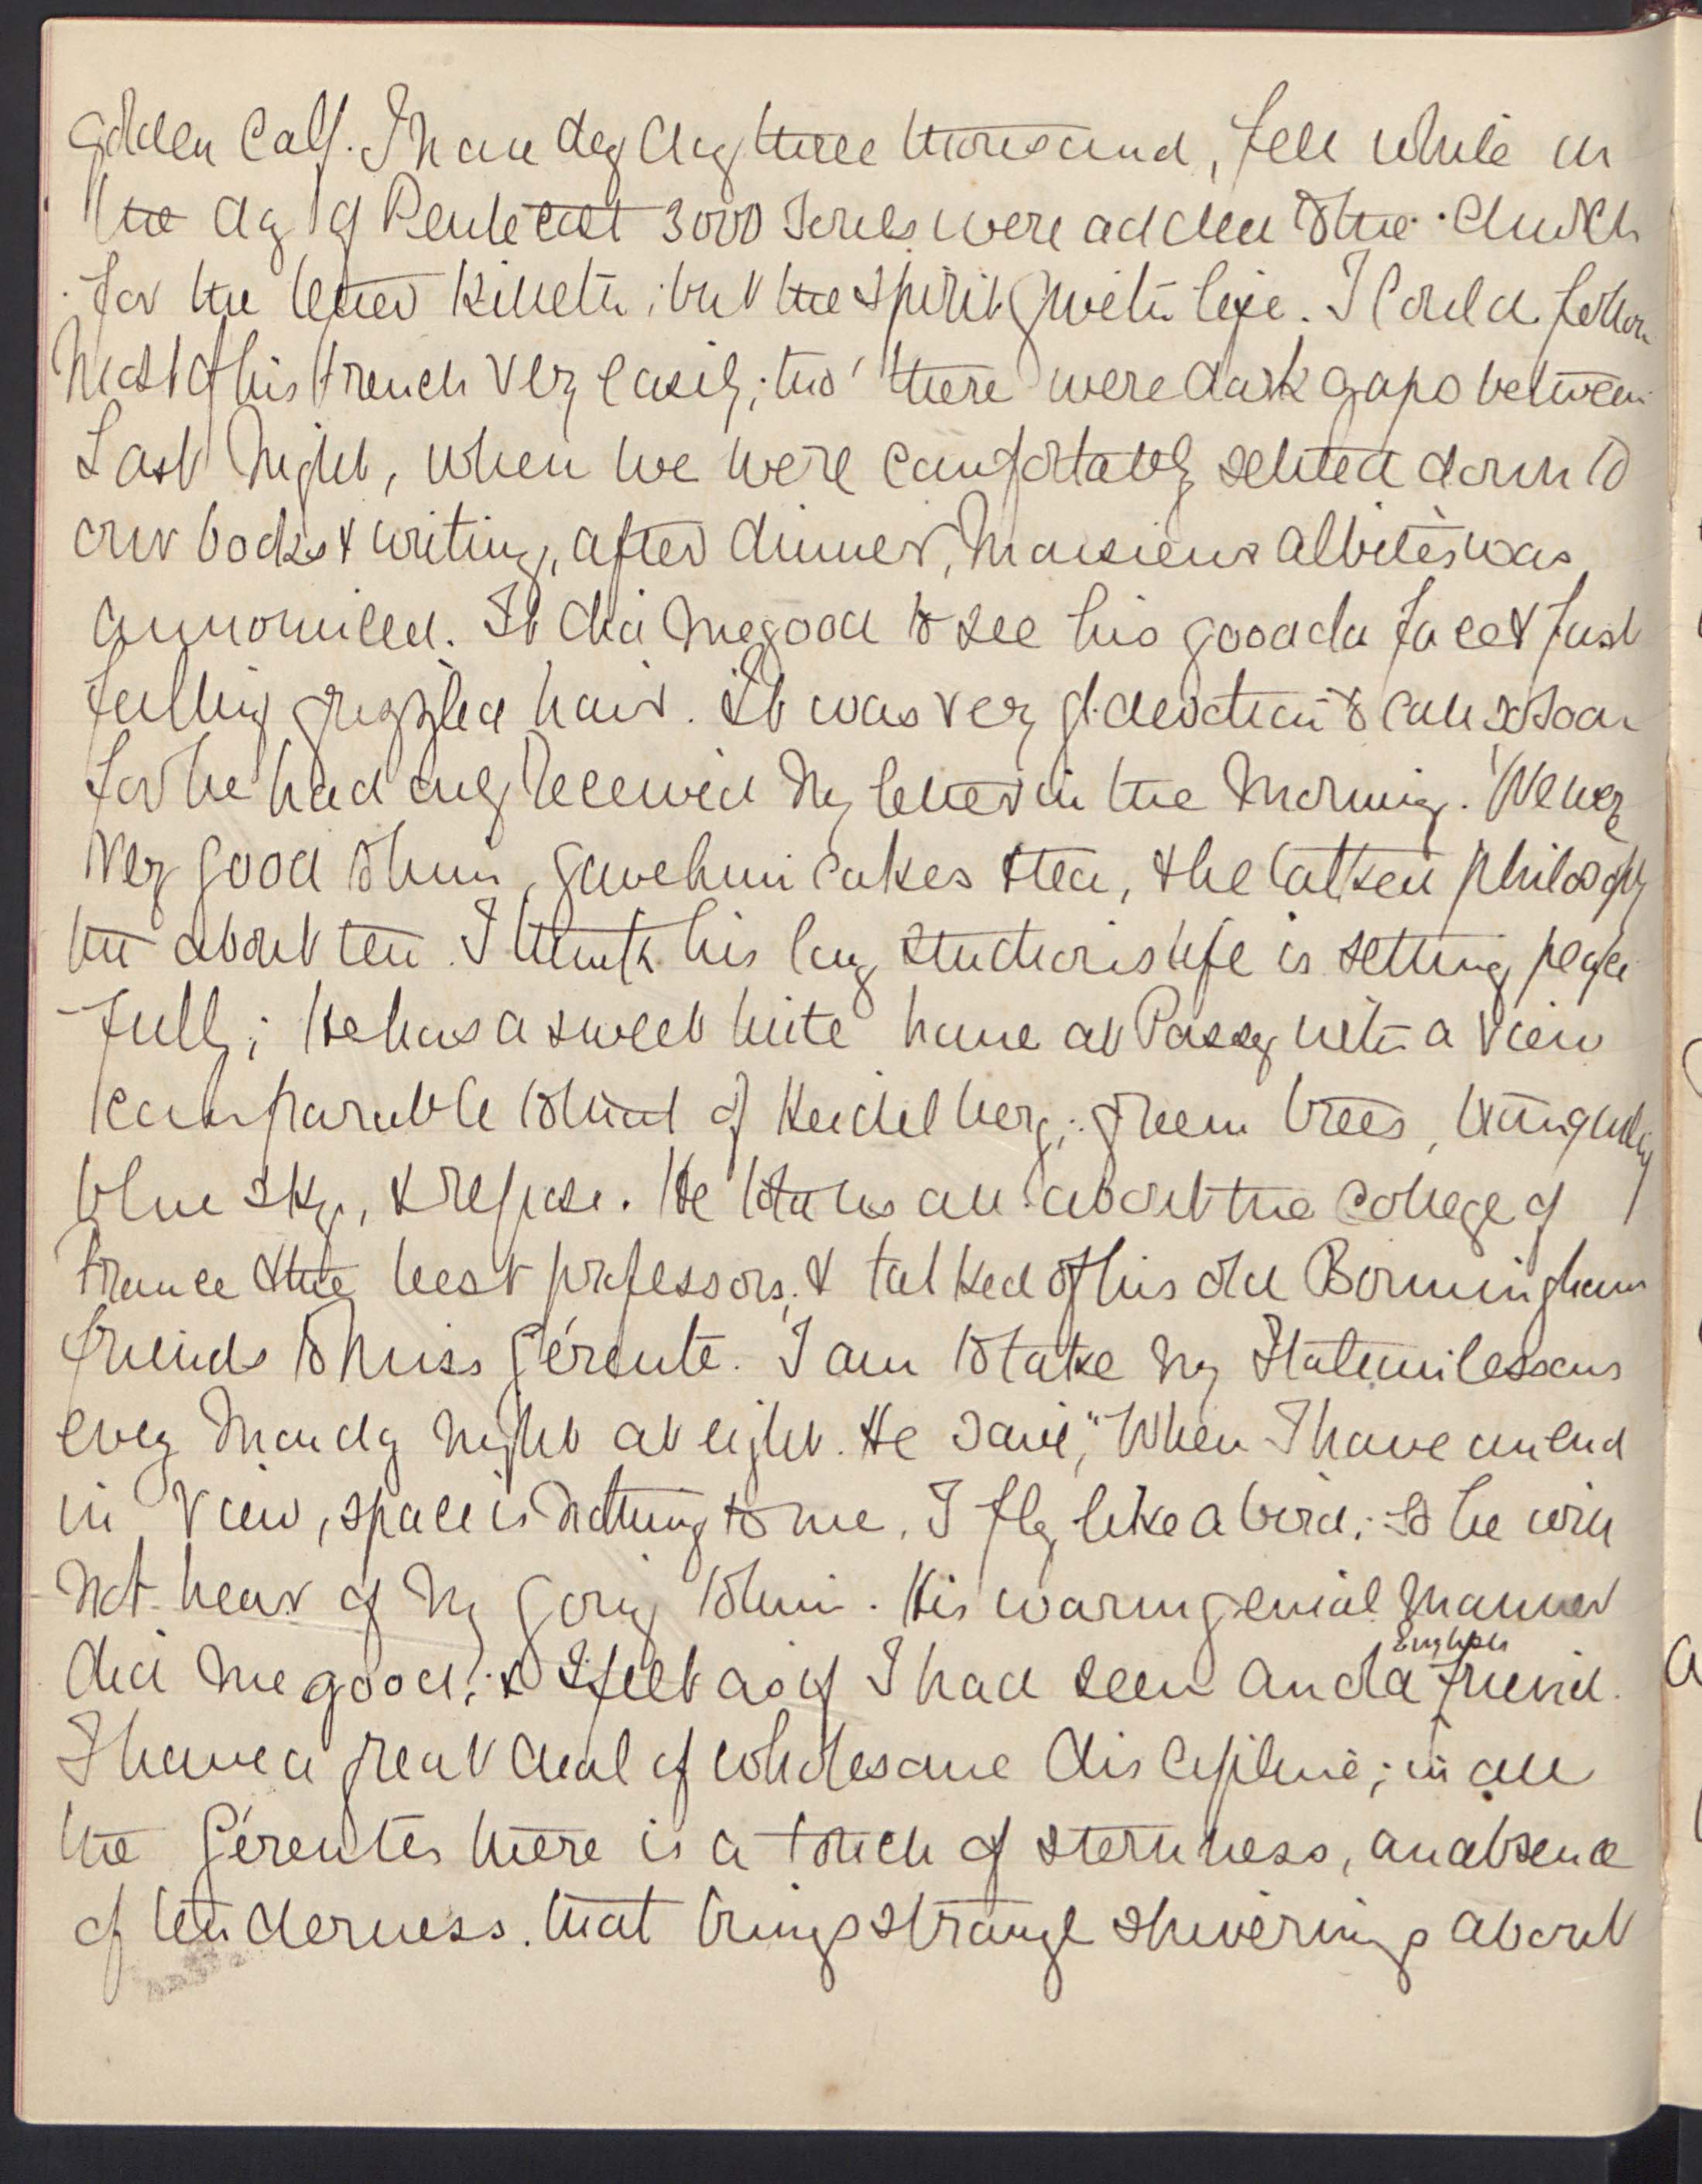 golden Calf. In one day only three thousand, fell while in
the day of Pentecost 3000 Souls were added to the Church
for the letter killeth; but the Spirit giveth life. I could follow
most of his French very easily; tho' there were dark gaps between
Last night, when we were comfortably settled down to
our books & writing, after dinner, Monsieur Albitès was
announced. It did me good to see his good old face & fast
falling grizzled hair. It was very good of him to call so soon
for he had only received my letter in the morning. We were
very good to him, gave him cakes & tea, & he talked philosophy
till about ten. I think his long studious life is setting peace
-fully; He has a sweet little home at Passy with a view
comparable to that of Heidelberg; green trees,
blue sky, & repose. He told us all about the College of
France & the best professors; & talked of his old Birmingham
friends to Miss Gérente. I am to take my Italian lessons
every Monday night at eight. He said, "When I have an end
in view, space is nothing to me, I fly like a bird; so he will
not hear of my going to him. His warm genial manner
did me good; & I felt as if I had seen an old English friend.
I have a great deal of wholesome discipline; in all
the Gérentes there is a touch of sternness, an absence
of tenderness that brings strange shiverings about